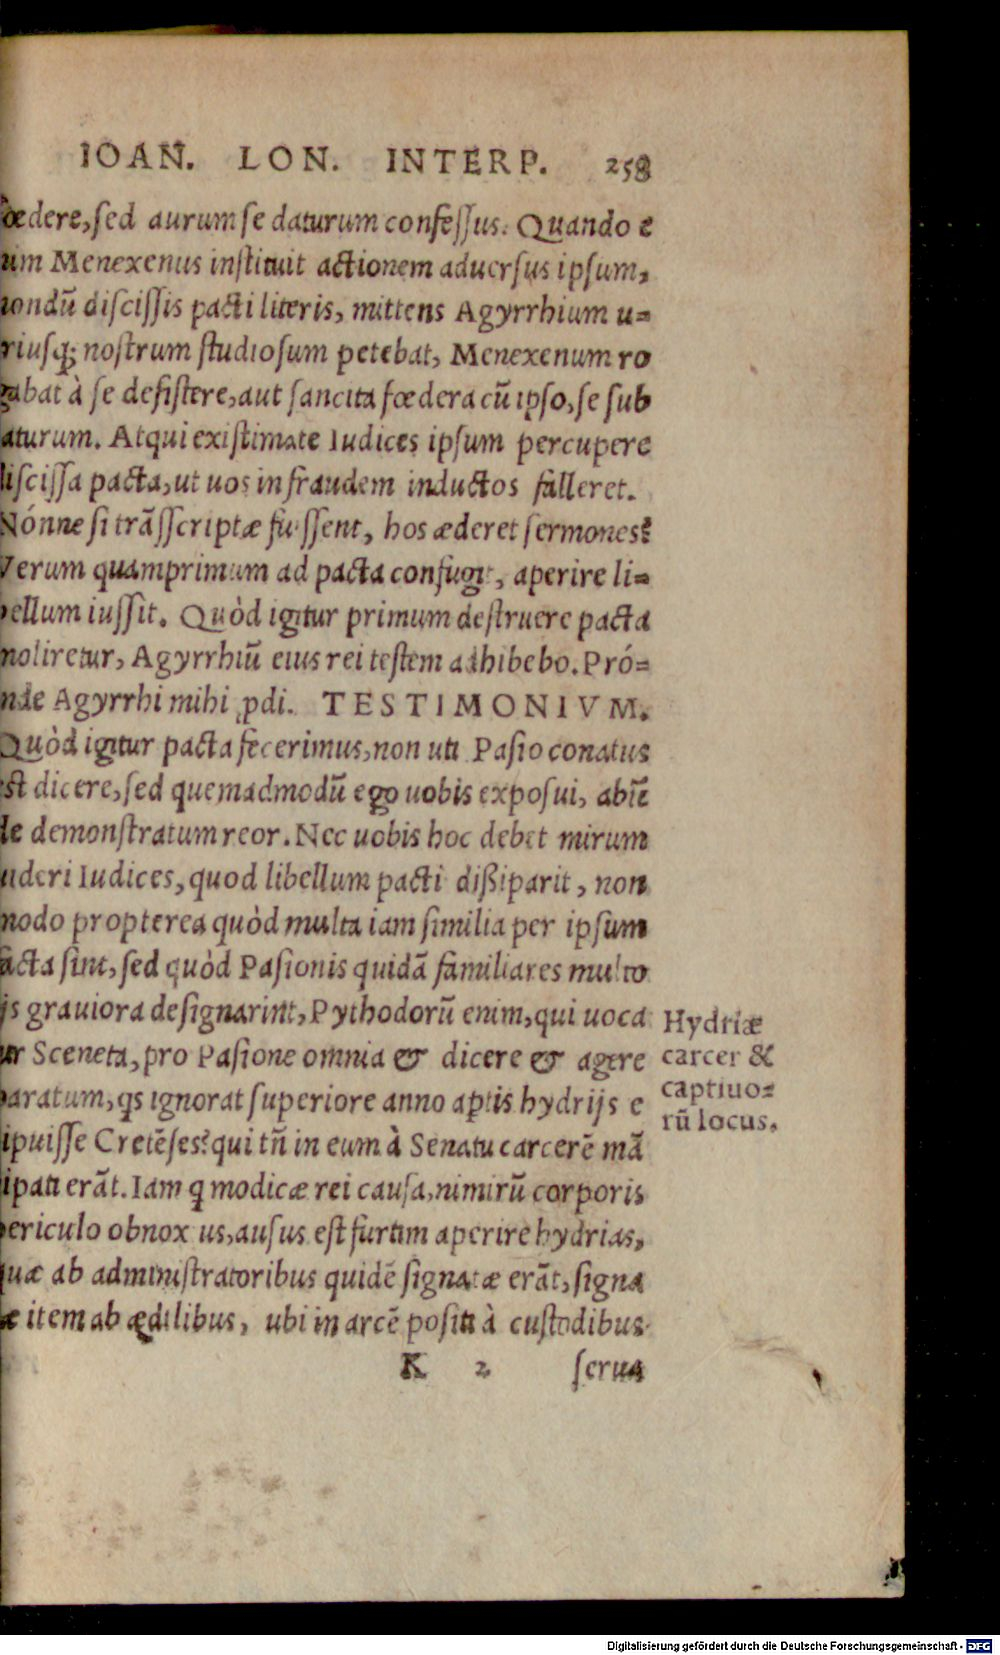 IOAN. LON. INTERP. 258
fœdere, sed aurum se daturum confessus. Quando e
um Menexenus instituit actionem aduersus ipsum,
nondū discissis pacti literis, mittens Agyrrhium u=
riusq; nostrum studiosum petebat, Menexenum ro
gabat à se desistere, aut sancita fœdera cū ipso, se sub
aturum. Atqui existimate Iudices ipsum percupere
liscissa pacta, ut uos in fraudem inductos falleret.
Nónne si trāsscriptæ fuissent, hos æderet sermones?
Verum quamprimum ad pacta confugit, aperire li=
bellum iussit. Quòd igitur primum destruere pacta
moliretur, Agyrrhiū eius rei testem adhibebo. Pró=
nde Agyrrhi mihi pdi. TESTIMONIVM.
Quòd igitur pacta fecerimus, non uti Pasio conatus
est dicere, sed quemadmodū ego uobis exposui, abūē
de demonstratum reor. Nec uobis hoc debet mirum
uideri Iudices, quod libellum pacti dißiparit, non
modo propterea quòd multa iam similia per ipsum
facta sint, sed quòd Pasionis quidā familiares multo
ijs grauiora designarint, Pythodorū enim, qui uoca
ur Sceneta, pro Pasione omnia & dicere & agere
paratum, qs ignorat superiore anno aptis hydrijs e
ipuisse Cretēses? qui tñ in eum à Senatu carcerē mā
ipati erāt. Iam q modicæ rei causa, nimirū corporis
periculo obnoxius, ausus est furtim aperire hydrias,
quæ ab administratoribus quidē signatæ erāt, signa
æ item ab ædilibus, ubi in arcē positi à custodibus
K 2 serua
Hydriæ
carcer &
captiuo=
rū locus.
Digitalisierung gefördert durch die Deutsche Forschungsgemeinschaft - DFG